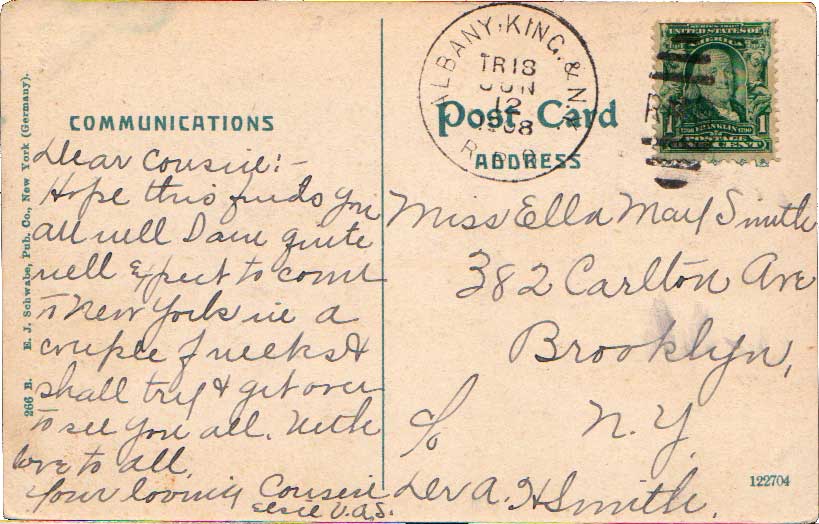 266 B. E. J. Schwabe, Pub. Co., New York (Germany).
COMMUNICATIONS
Dear Cousin:-
Hope this finds you
all well I am quite
well Expect to come
to New York in a
couple of weeks &
shall try & get over
to see you all. With
love to all.
Your loving Cousin
Elsie V. A. S.
ALBANY, KING. & N.Y.
TR18
JUN
12
1908
R.P.O.
Post Card
ADDRESS
SERIES 1902
UNITED STATES OF
AMERICA
1706 FRANKLIN 1790
1 POSTAGE 1
ONE CENT
Miss Ella May Smith
382 Carlton Ave
Brooklyn,
N.Y.
c/o
Dev A. H Smith.
122704